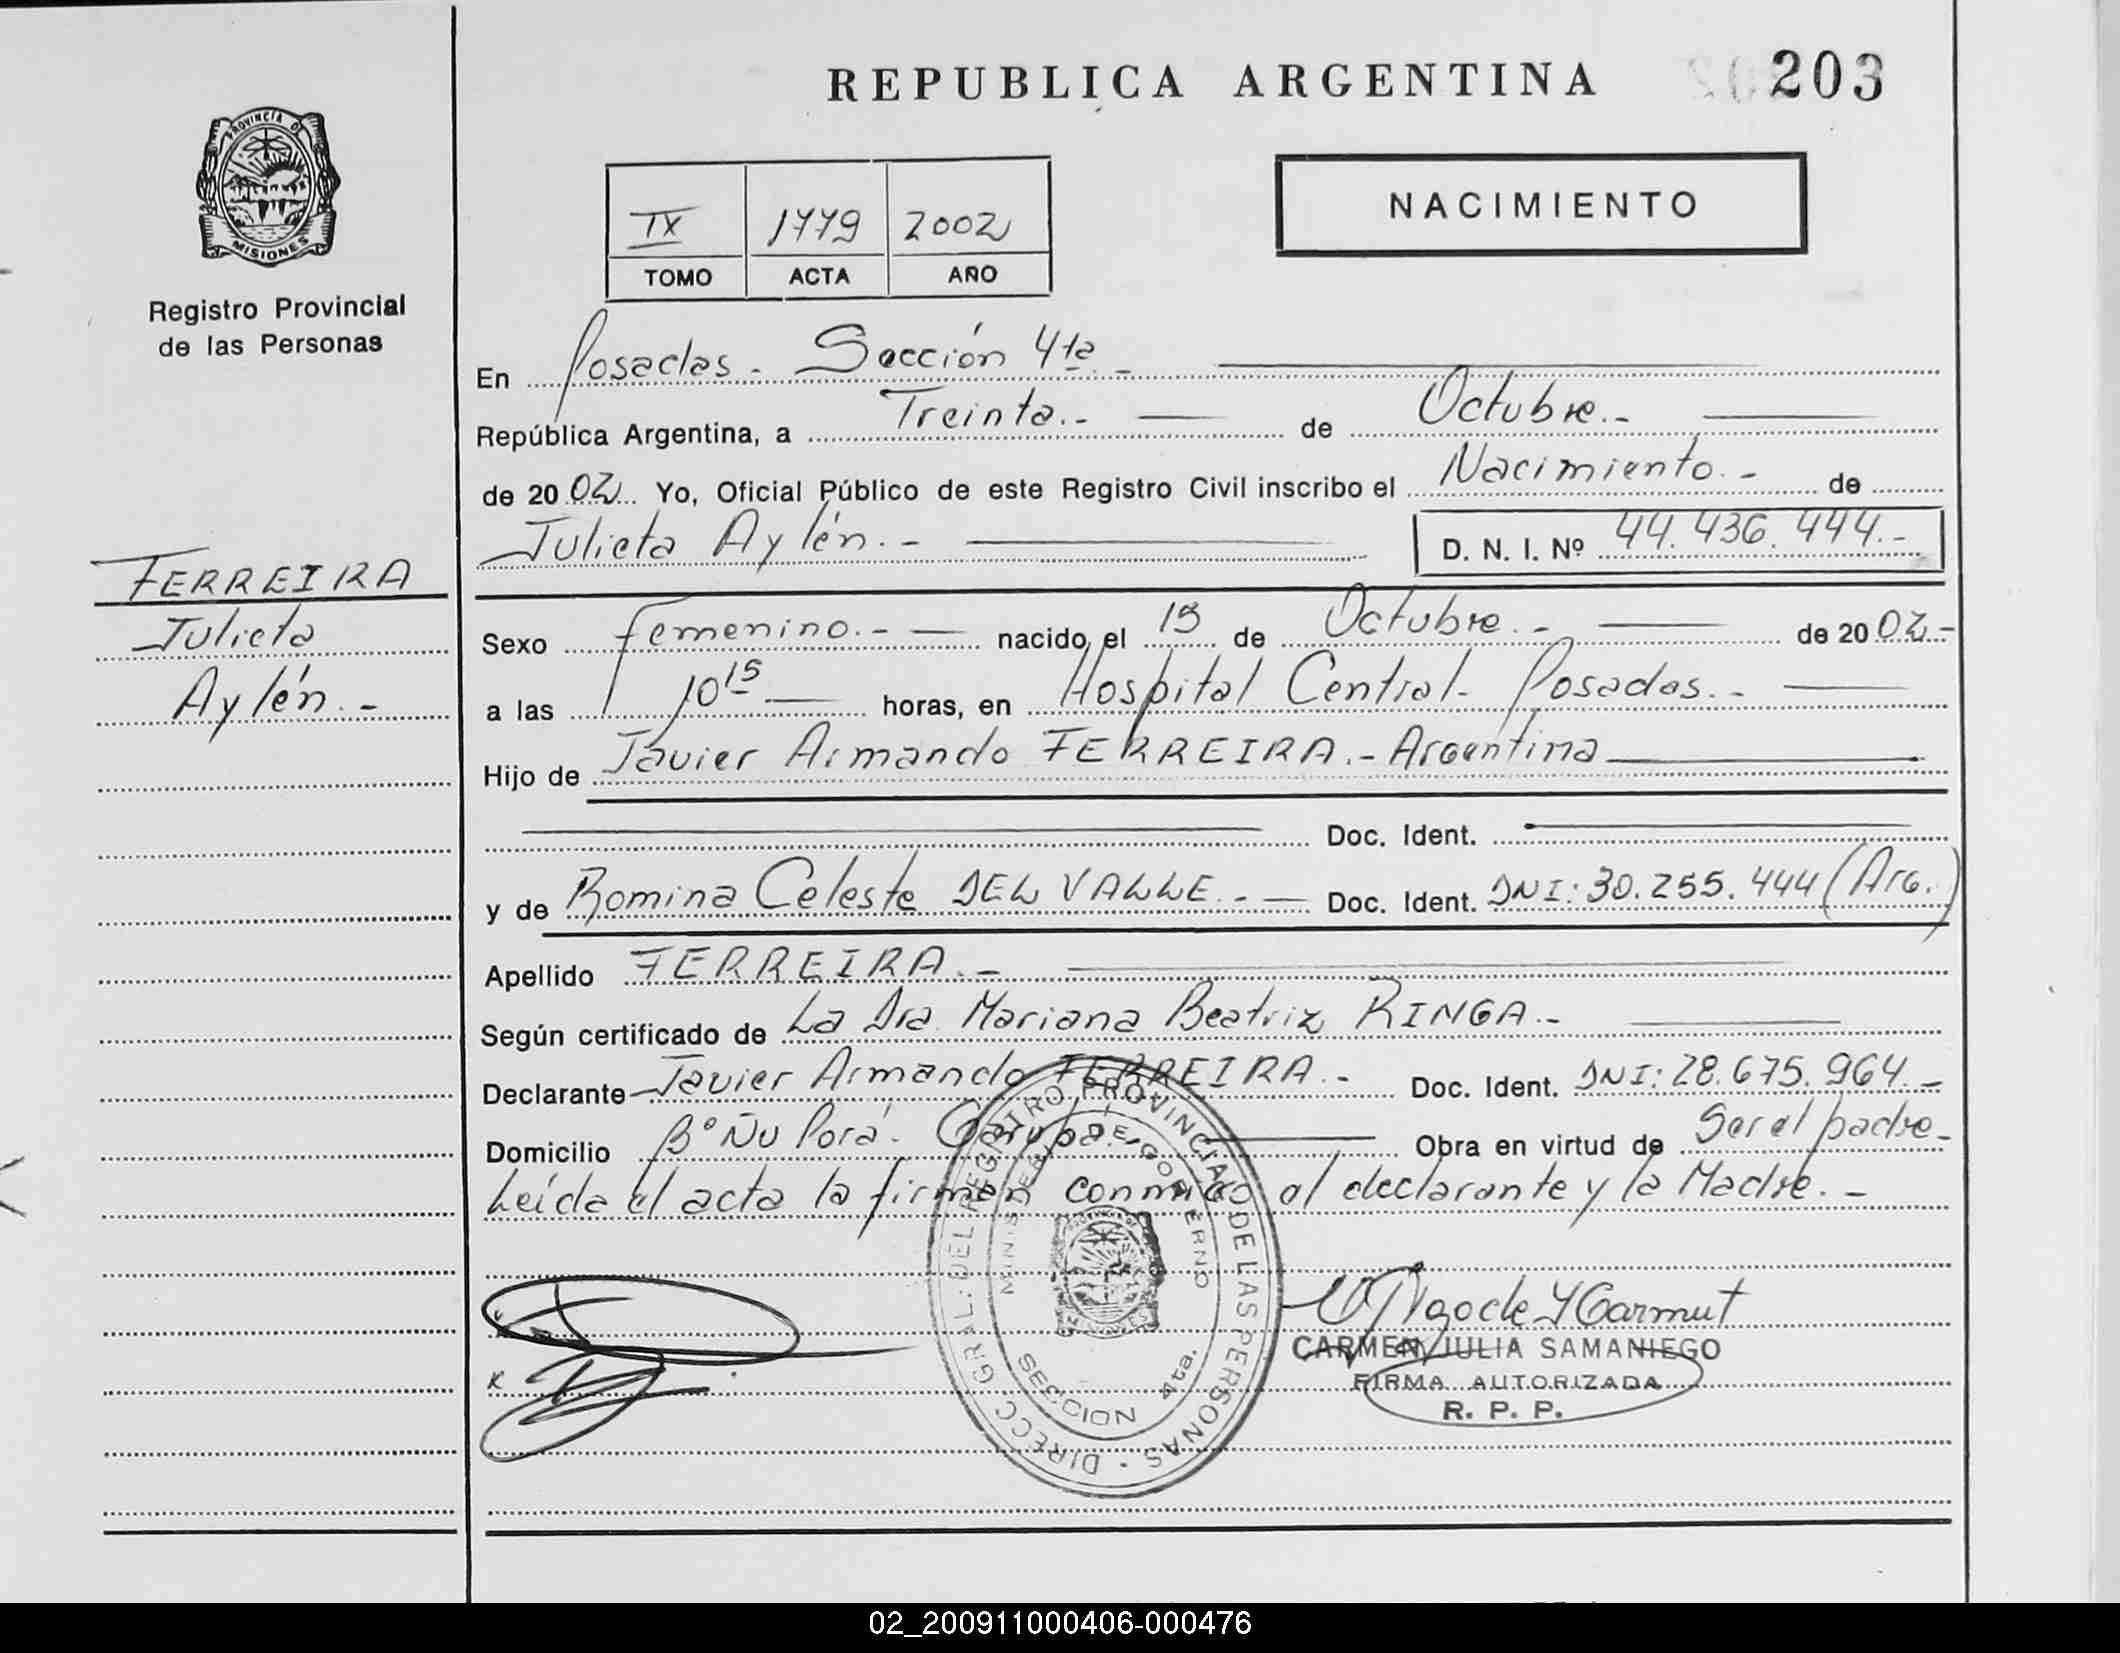 REPUBLICA ARGENTINA 203
PROVINCIA DE
MISIONES
Registro Provincial
de las Personas
NACIMIENTO
IX 1779 2002
TOMO ACTA AÑO
En Posadas.- Sección 4ta.-
República Argentina, a Treinta.- de Octubre.-
de 2002 Yo, Oficial Público de este Registro Civil inscribo el Nacimiento.- de
Julieta Aylén.- D. N. I. Nº 44.436.444.-
FERREIRA
Julieta
Aylén.-
Sexo femenino.- nacido el de Octubre.- de 2002.-
a las 10 15 horas, en Hospital Central- Posadas.-
Hijo de Javier Armando FERREIRA.- Argentina
Doc. Ident.
y de Romina Celeste DEL VALLE.- Doc. Ident. DNI: 30.255.444 (Arg.)
Apellido FERREIRA.-
Según certificado de La Dra. Mariana Beatriz RINGA.-
Declarante Javier Armando FERREIRA.- Doc. Ident. DNI: 28.675.964.-
Domicilio Bº Ñu Porá. Garupá.- Obra en virtud de Ser el padre-
Leída el acta la firman conmigo el declarante y la Madre.-
DIRECC. GRAL. DEL REGISTRO PROVINCIAL DE LAS PERSONAS
MINISTERIO DE GOBIERNO
SECCION 4ta.
CARMEN JULIA SAMANIEGO
FIRMA AUTORIZADA
R. P. P.
02_200911000406-000476